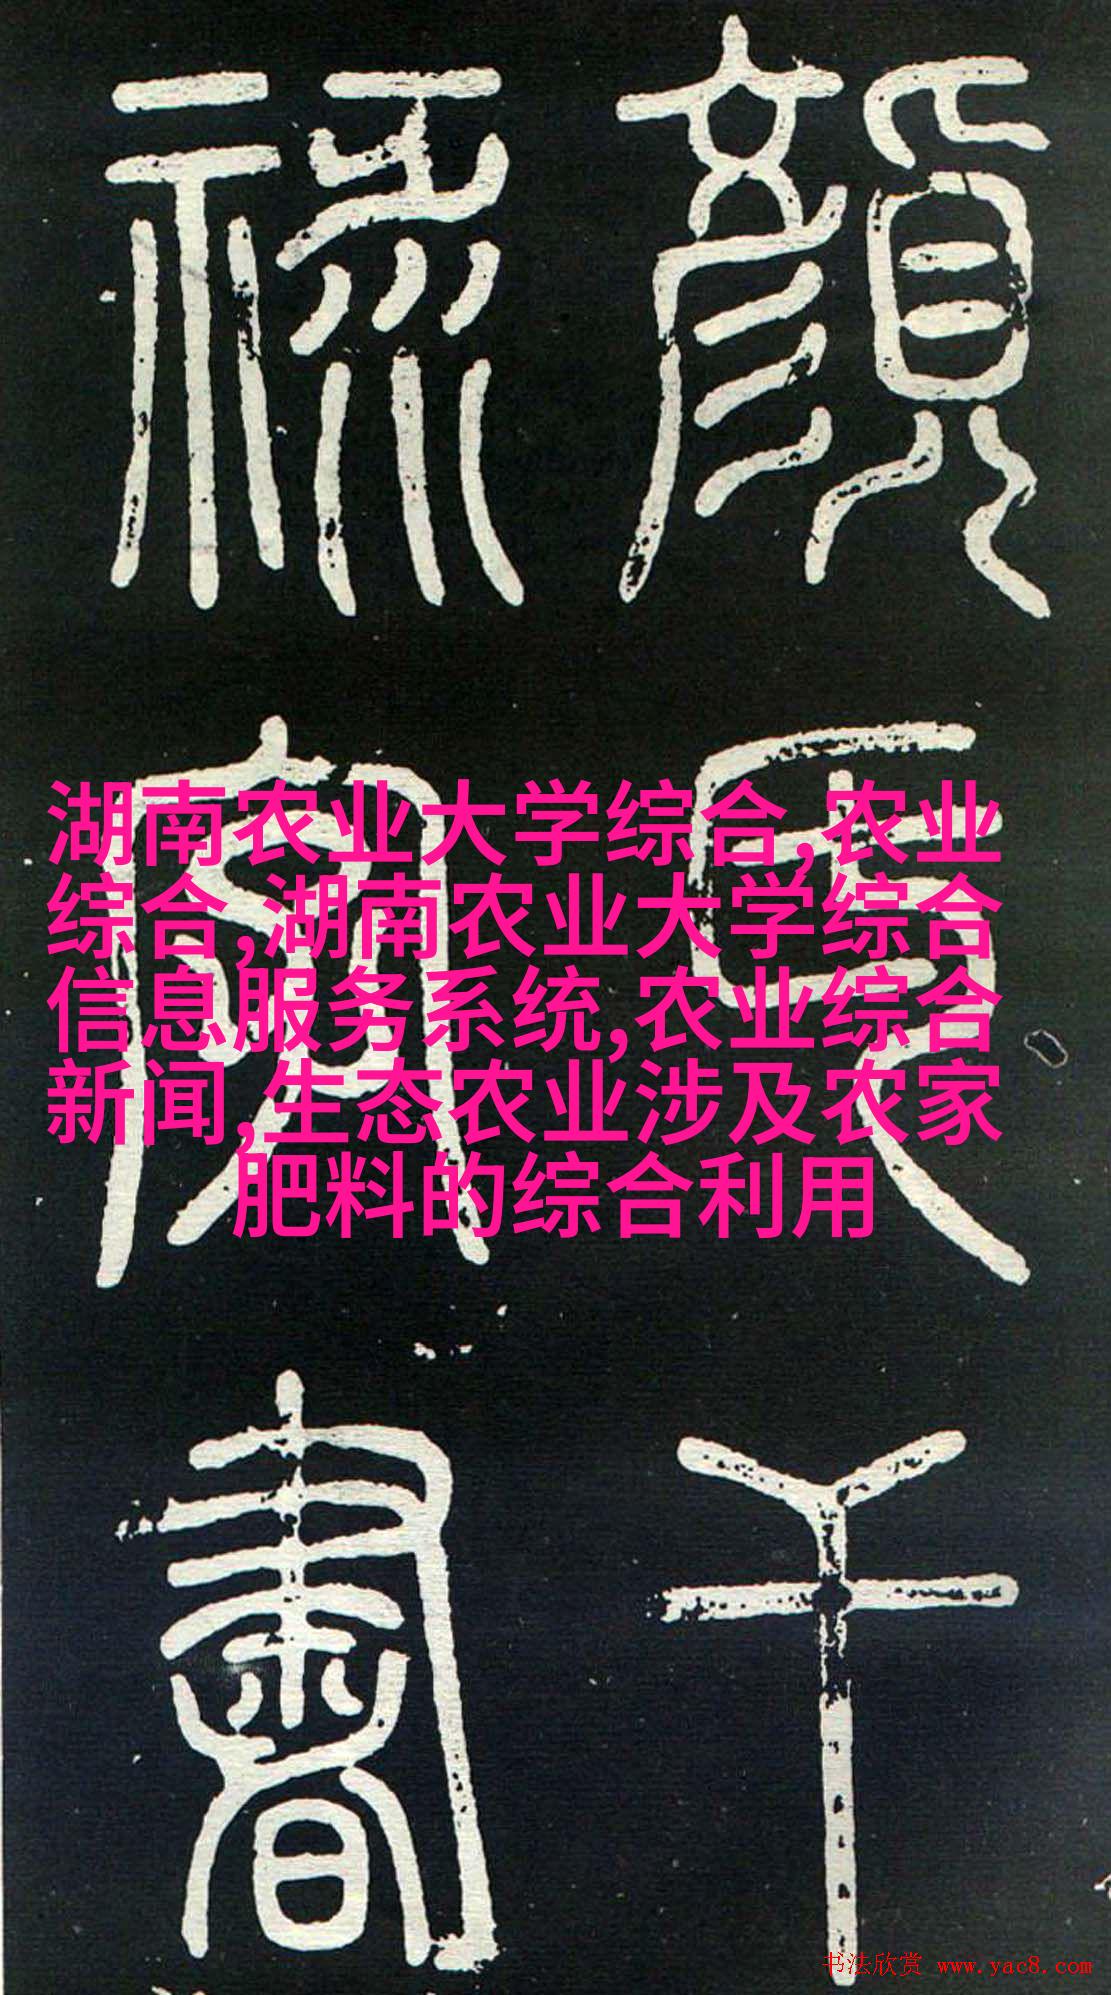 顏
干
禄
書
湖南农业大学综合,农业
综合,湖南农业大学综合
信息服务系统,农业综合
新闻,生态农业涉及农家
肥料的综合利用
书法欣赏 www.yac8.com